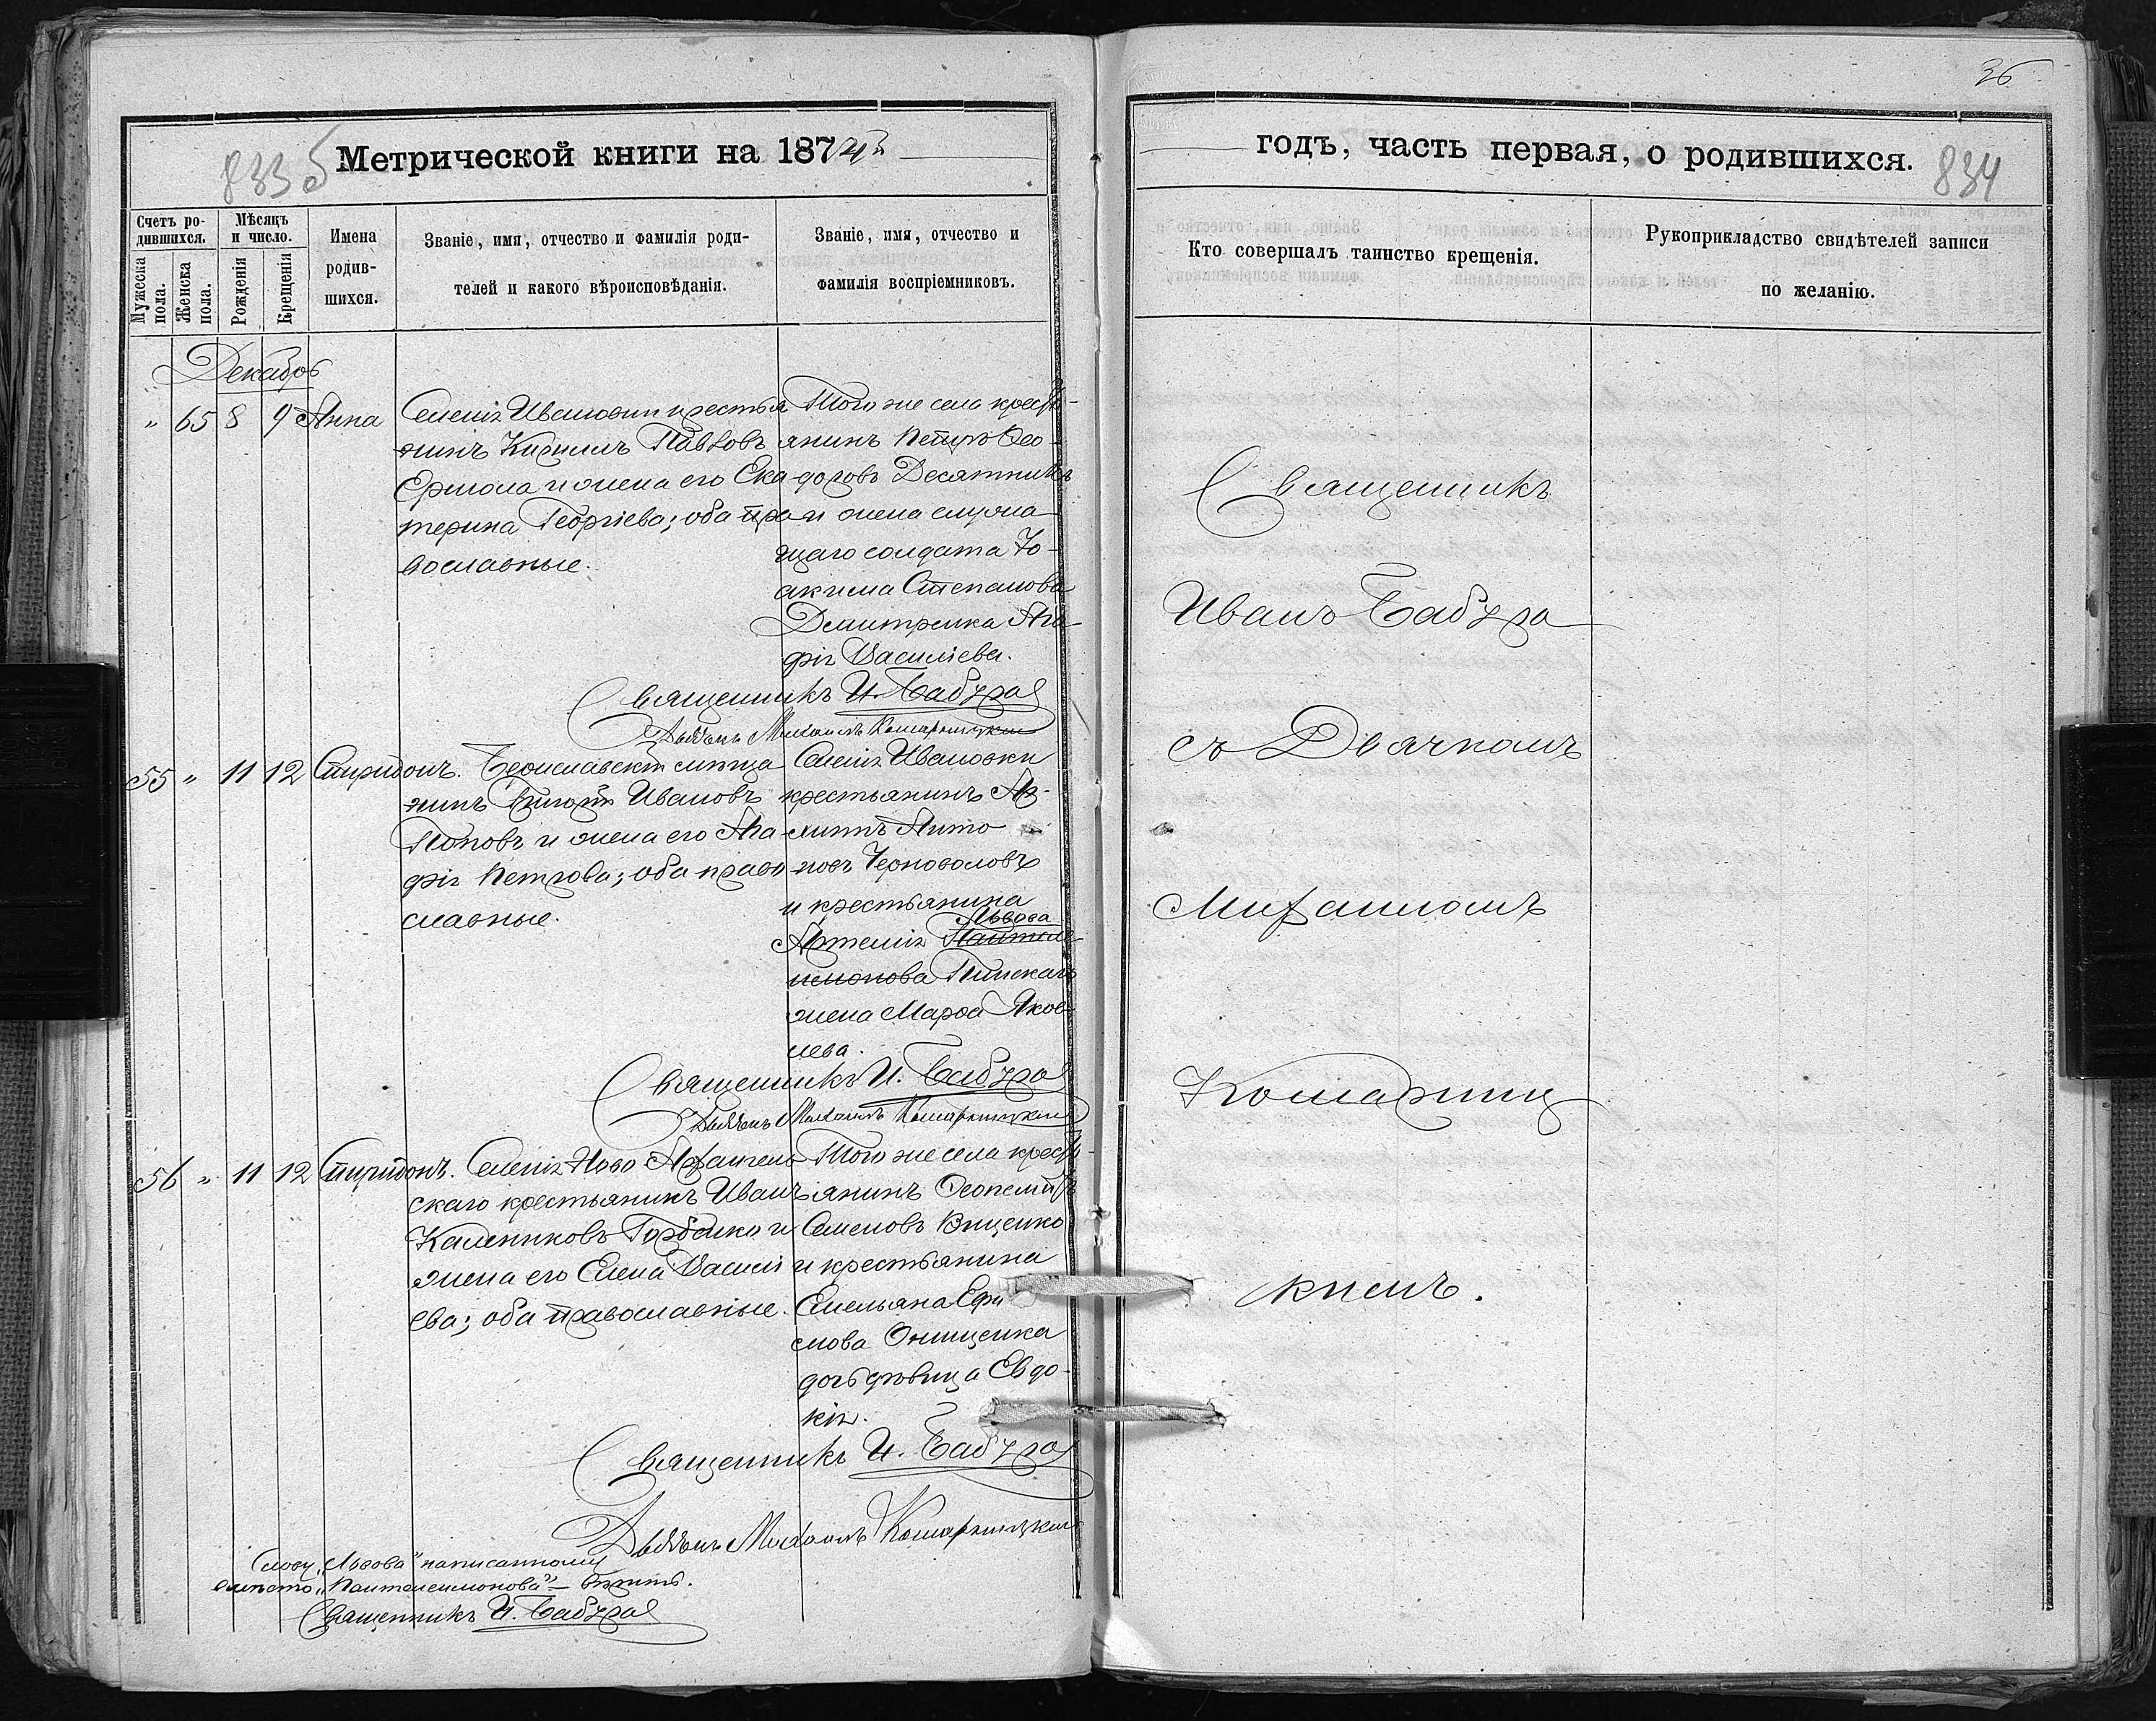 36
833 б
Метрической книги на 1874й
годъ, часть первая, о родившихся.
834
Счетъ ро-
дившихся.
Мужеска пола.
Женска пола.
Мѣсяцъ
и число.
Рожденія
Крещенія
Имена
родив-
шихся.
Званіе, имя, отчество и фамилія роди-
телей и какого вѣроисповѣданія.
Званіе, имя, отчество и
фамилія воспріемниковъ.
Кто совершалъ таинство крещенія.
Рукоприкладство свидѣтелей записи
по желанію.
Декабрь
" 65 8 9 Анна
Селенія Ивановки крестья
нинъ Кириллъ Павловъ
Ермола и жена его Ека
терина Георгіева; оба пра
вославные.
Того же села кресть-
янинъ Петръ Ѳео-
доровъ Десятникъ
и жена служа
щаго солдата Іо-
акима Степанова
Демитренка Ага-
фія Василіева.
Священникъ И. Бабура
Дьячекъ Михаилъ Комарницкій
55 " 11 12 Спиридонъ.
Бериславскій мѣща
нинъ Ивановъ
Поповъ и жена его Ага
фія Петрова; оба право
славные.
Селенія Ивановки
крестьянинъ Ар-
хипъ Анто
новъ Черноволовъ
и крестьянина
Львова
Артемія Пантеле
имонова
жена Марѳа Яков-
лева.
Священникъ И. Бабура
Дьячекъ Михаилъ Комарницкій
56 " 11 12 Спиридонъ.
Селенія Ново Архангель
скаго крестьянинъ Иванъ
Калениковъ Горбенко и
жена его Елена Василі
ева; оба православные.
Того же села кресть-
янинъ Ѳеопемптъ
Семеновъ Вищенко
и крестьянина
Емельяна Ефи
мова Онищенка
дочь дѣвица Евдо-
кія.
Священникъ И. Бабура
Дьячекъ Михаилъ Комарницкій
Слову „Львова" написанному
вмѣсто „Пантелеимонова" — вѣрить.
Священникъ И. Бабура
Священникъ
Иванъ Бабура
съ Дьячкомъ
Михаиломъ
Комарниц
кимъ.